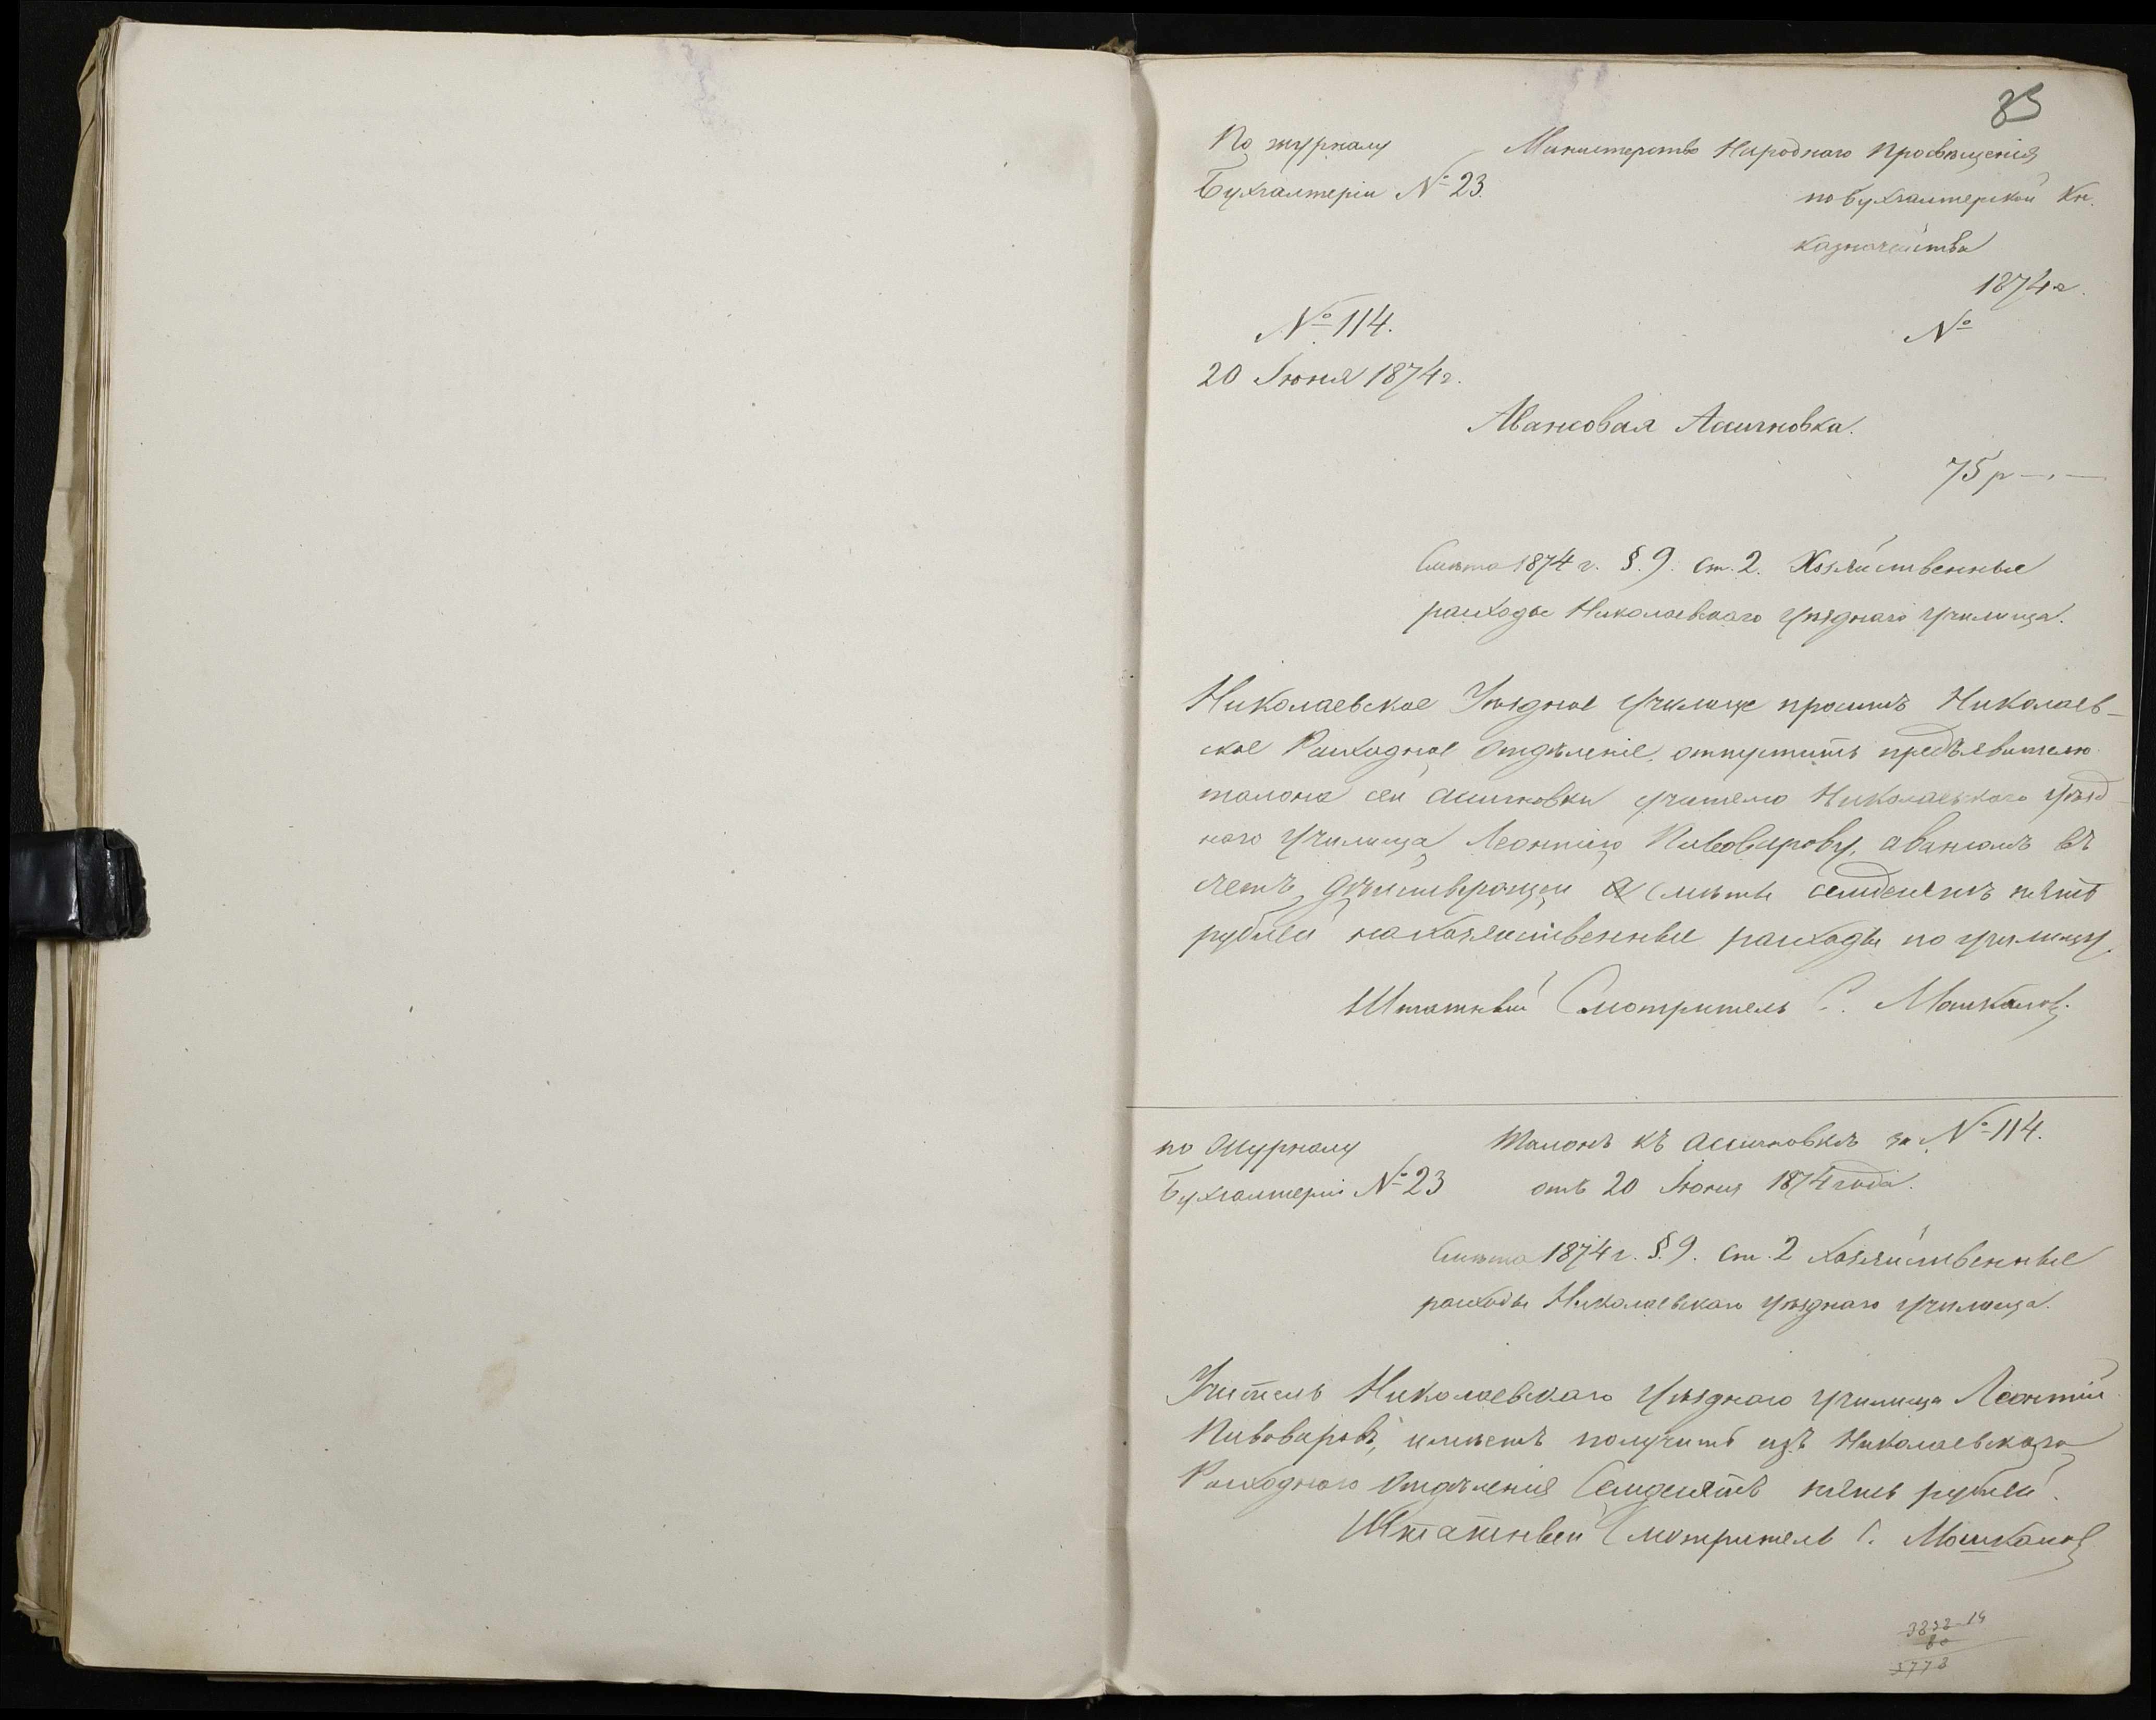 83
По журналу
Бухгалтеріи № 23.
Министерство Народнаго Просвѣщенія
по бухгалтерской Кн.
казначейства
1874 г.
№
№ 114.
20 Іюня 1874 г.
Авансовая Ассигновка.
75 р — " —
Смѣта 1874 г. §. 9. ст. 2. Хозяйственные
расходы Николаевскаго уѣзднаго училища.
Николаевское Уѣздное училище проситъ Николаев-
ское Расходное Отдѣленіе, отпустить предъявителю
талона сей ассигновки учителю Николаевскаго уѣзд-
наго училища Леонтію Пивоварову, авансомъ въ
счетъ дѣйствующей смѣты семдесятъ пять
рублей на хозяйственные расходы по училищу.
Штатный Смотритель С. Машкалов
по Журналу
Бухгалтеріи № 23
Талонъ къ ассигновкѣ за № 114.
отъ 20 Іюня 1874 года.
Смѣта 1874 г. §. 9. ст. 2 хозяйственные
расходы Николаевскаго уѣзднаго училища.
Учитель Николаевскаго уѣзднаго училища Леонтій
Пивоваровъ, имѣетъ получить изъ Николаевскаго
Расходнаго Отдѣленія Семдесятъ пять рублей.
Штатный Смотритель С.
3832 14
80
3773